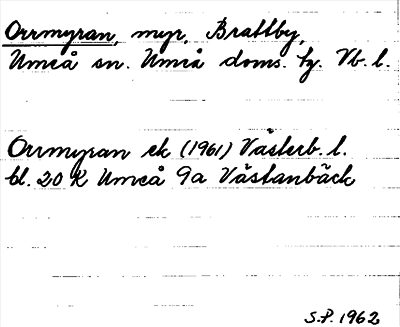 Orrmyran, myr, Brattby,
Umeå sn. Umeå doms. hg. Vb. l.
Orrmyran ek (1961) Västerb. l.
bl. 20 K Umeå 9a Västanbäck
S.P. 1962